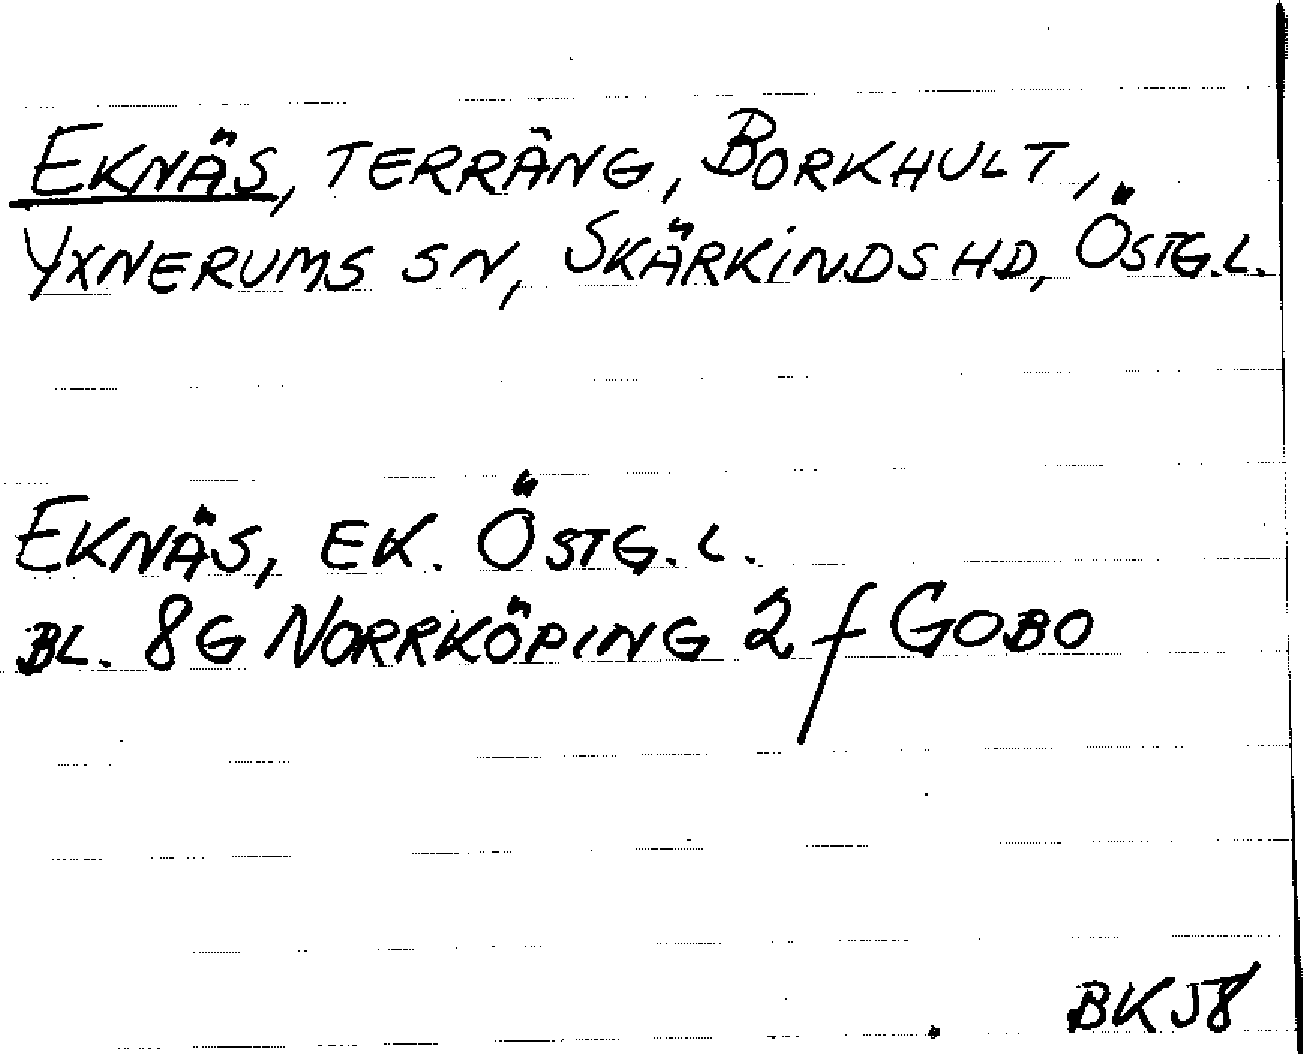 EKNÄS, TERRÄNG, BORKHULT,
YXNERUMS SN, SKÄRKINDS HD, ÖSTG.L.
EKNÄS, EK. ÖSTG.L.
BL. 8G NORRKÖPING 2f GOBO
BKJ8